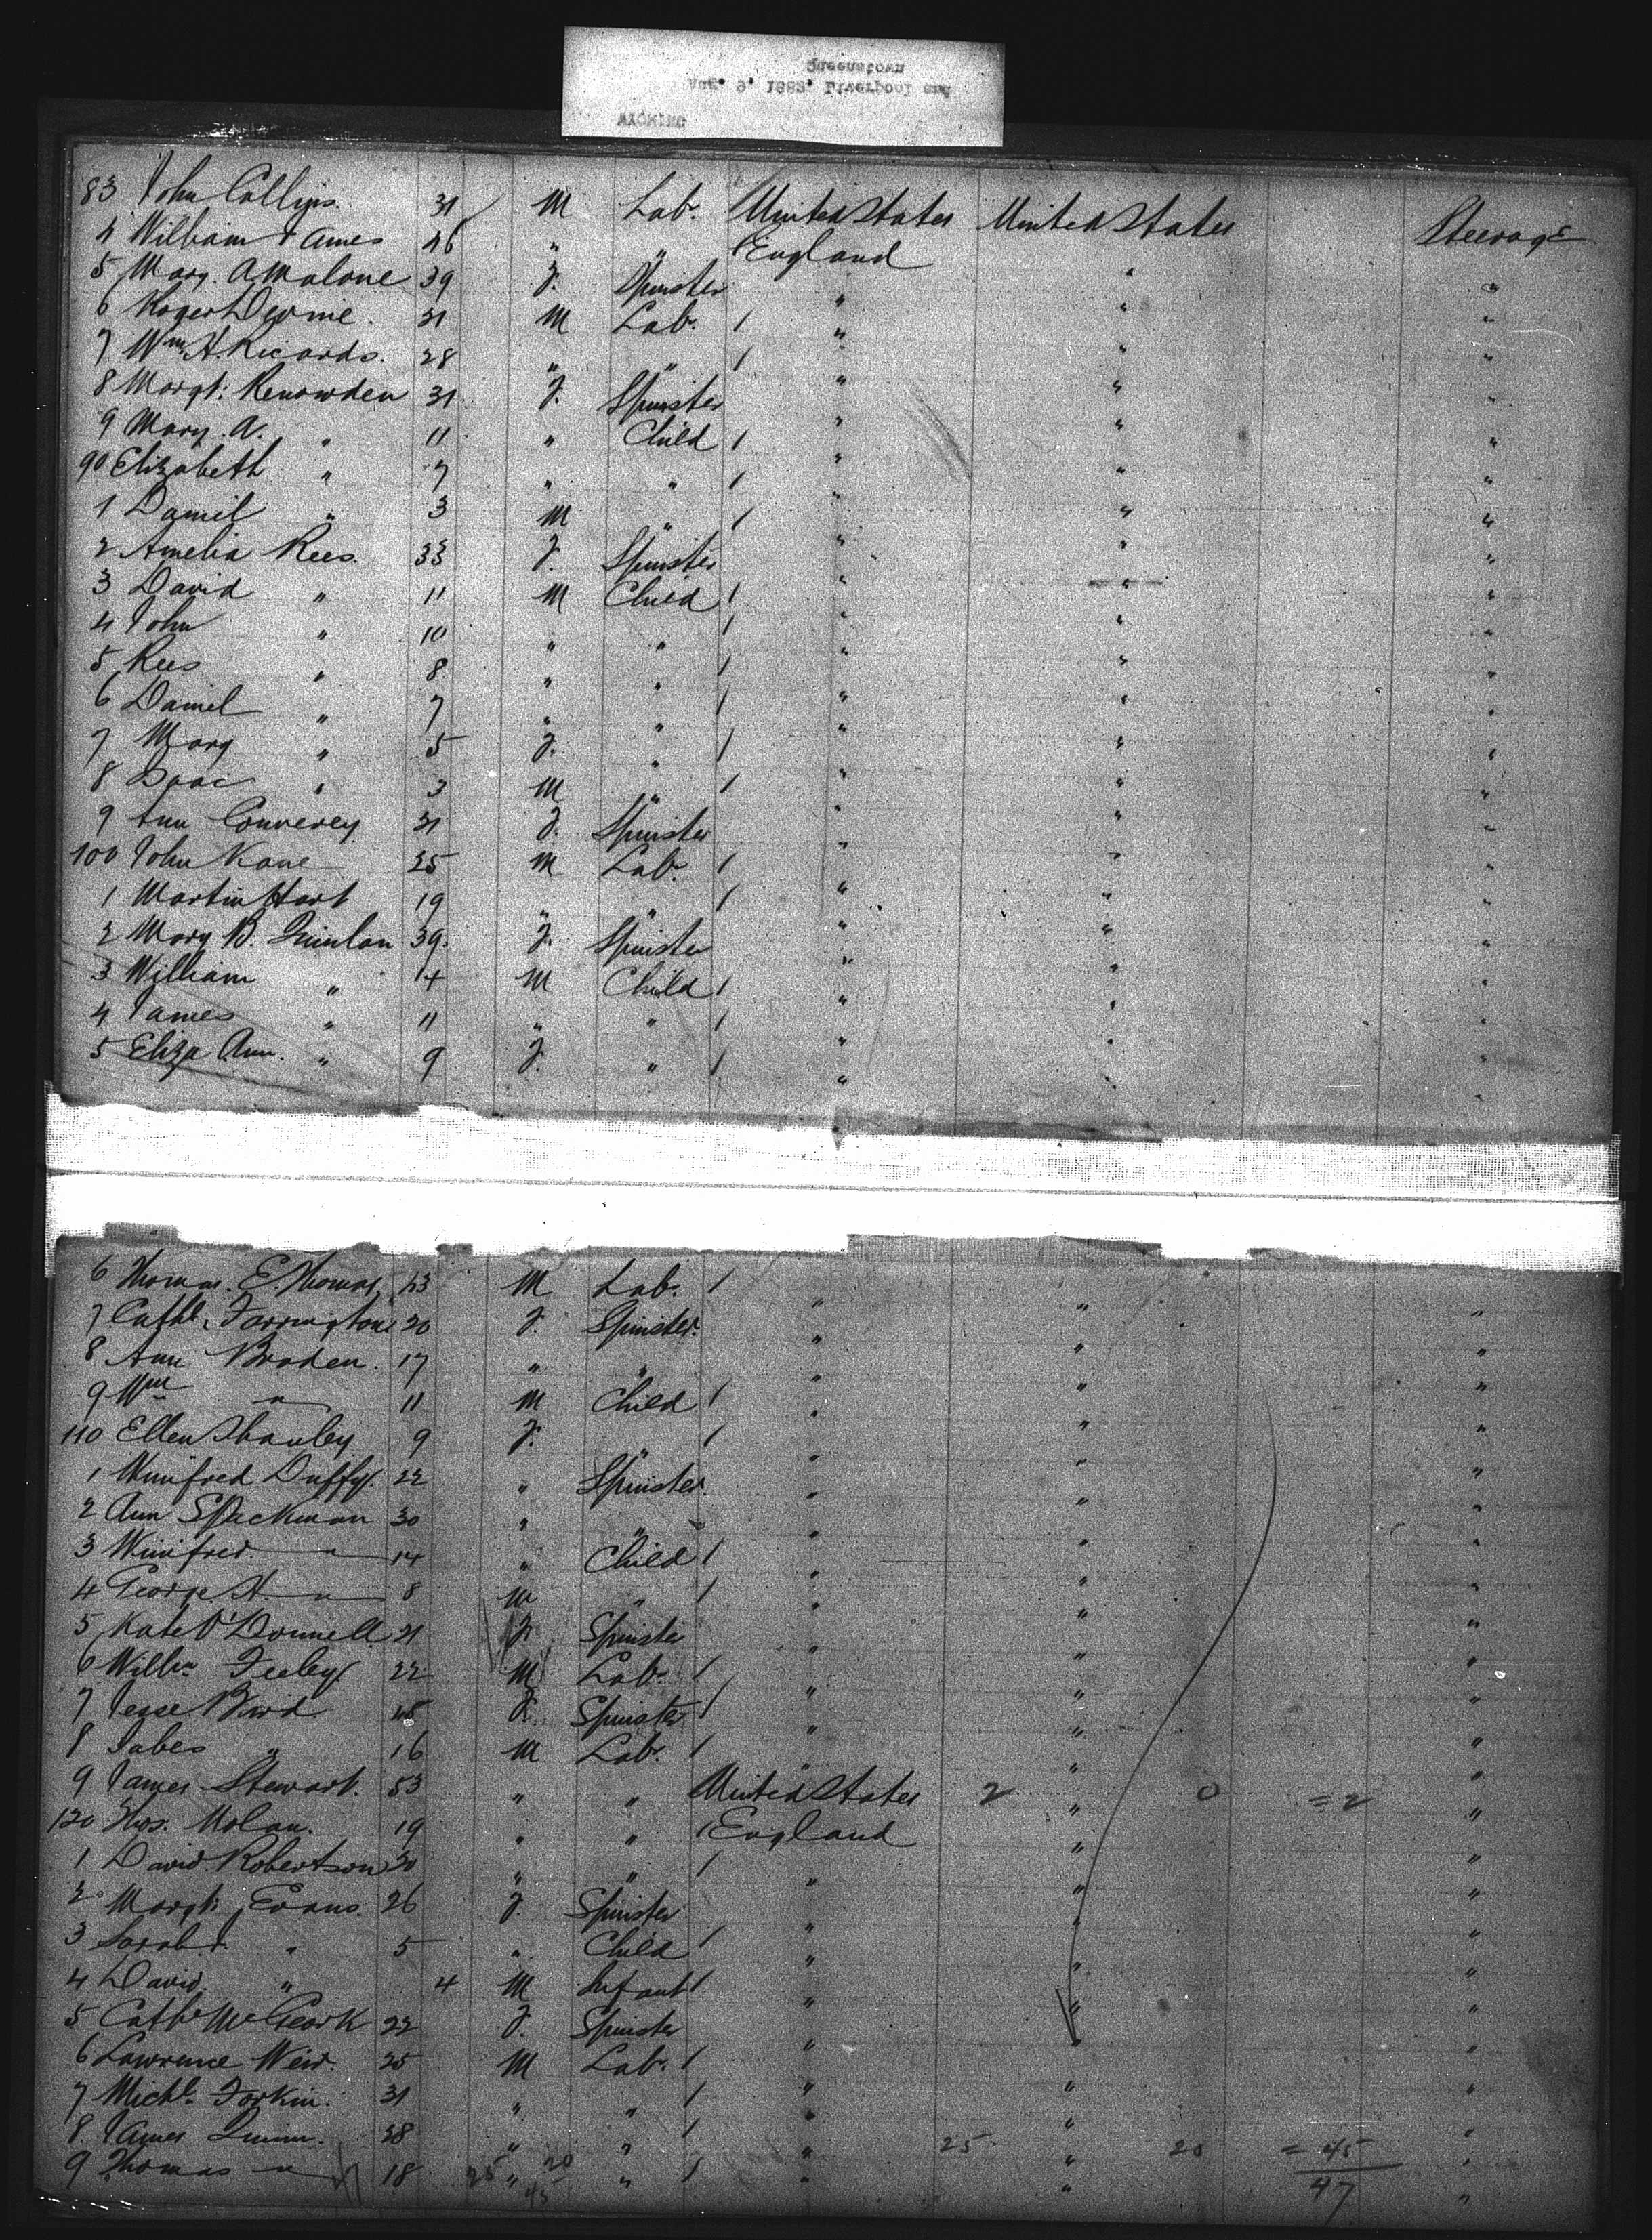 WYOMING
Aug. 9, 1883. Liverpool and
Queenstown
83 John Collins. 31 M Lab. United States United States Steerage
4 William James 46 " " England " "
5 Mary. A Malone 39 F. Spinster " " "
6 Roger 31 M Lab. / " " "
7 Wm. H. Ricards. 28 " " / " " "
8 Margt. Renowden 31 F. Spinster " " "
9 Mary. A. " 11 " Child / " " "
90 Elizabeth " 7 " " / " " "
1 Daniel " 3 M " / " " "
2 Amelia Rees. 33 F. Spinster " " "
3 David " 11 M Child / " " "
4 John " 10 " " / " " "
5 Rees " 8 " " / " " "
6 Daniel " 7 " " / " " "
7 Mary " 5 F. " / " " "
8 Isaac " 3 M " / " " "
9 Ann Converey 31 F. Spinster " " "
100 John Kane 25 M Lab. / " " "
1 Martin Hart 19 " " / " " "
2 Mary B. Quinlan 39. F. Spinster " " "
3 William " 14 M Child / " " "
4 James " 11 " " / " " "
5 Eliza Ann. " 9 F. " / " " "
6 Thomas. E. Thomas, 43 M Lab. / " " "
7 Cathe. Farringtone 20 F. Spinster. " " "
8 Ann Braden. 17 " " " " "
9 Wm " 11 M Child / " " "
110 Ellen Shanley 9 F. " / " " "
1 Winifred Duffy. 22 " Spinster. " " "
2 Ann Spackman 30 " " " " "
3 Winifred. " 14 " Child / " " "
4 George. H. " 8 M " / " " "
5 Kate O'Donnell 21 F. Spinster " " "
6 Willm Feeley 22 M Lab. / " " "
7 Jesse Bird 45 F. Spinster / " " "
8 Jabes " 16 M Lab. / " " "
9 James Stewart. 53 " " United States 2 " 0 = 2 "
120 Thos. Molan. 19 " " / England " "
1 David Robertson 30 " " / " " "
2 Margt. Evans. 26 F. Spinster " " "
3 Sarah " 5 " Child / " " "
4 David. " 4 M Infant / " " "
5 Cath. McGeark 22 F. Spinster " " "
6 Lawrence Weir. 25 M Lab. / " " "
7 Michl. Forkin. 31 " " / " " "
8 James Quinn. 28 " " / " 25 " 20 = 45 "
9 Thomas " 18 25 " 20 " / " " 47 "
45